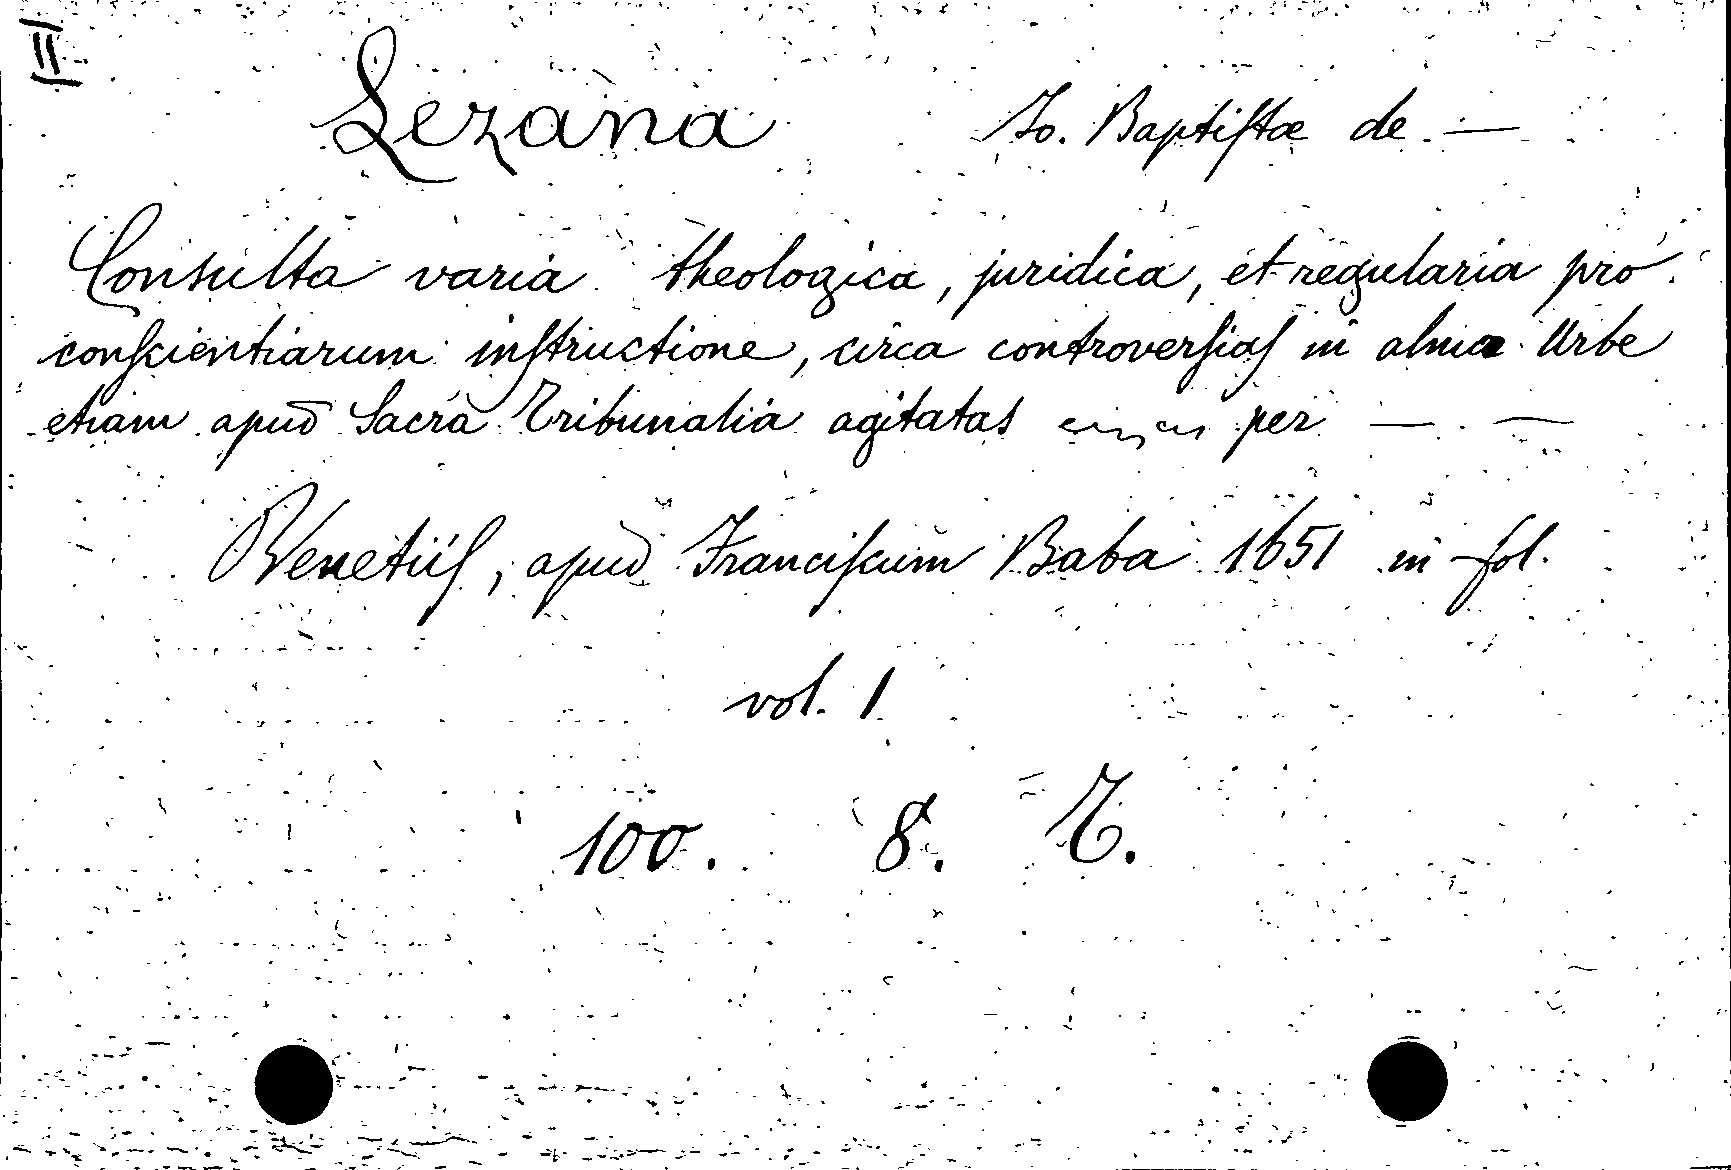 II
Lezana Jo. Baptiſtæ de —
Consulta varia theologica, juridica, et regularia pro
conſcientiarum inſtructione, circa controverſiaſ in alma Urbe
etiam apud Sacra Tribunalia agitatas per — —
Venetiiſ, apud Franciſcum Baba 1651 in fol.
vol. 1
100. 8. T.